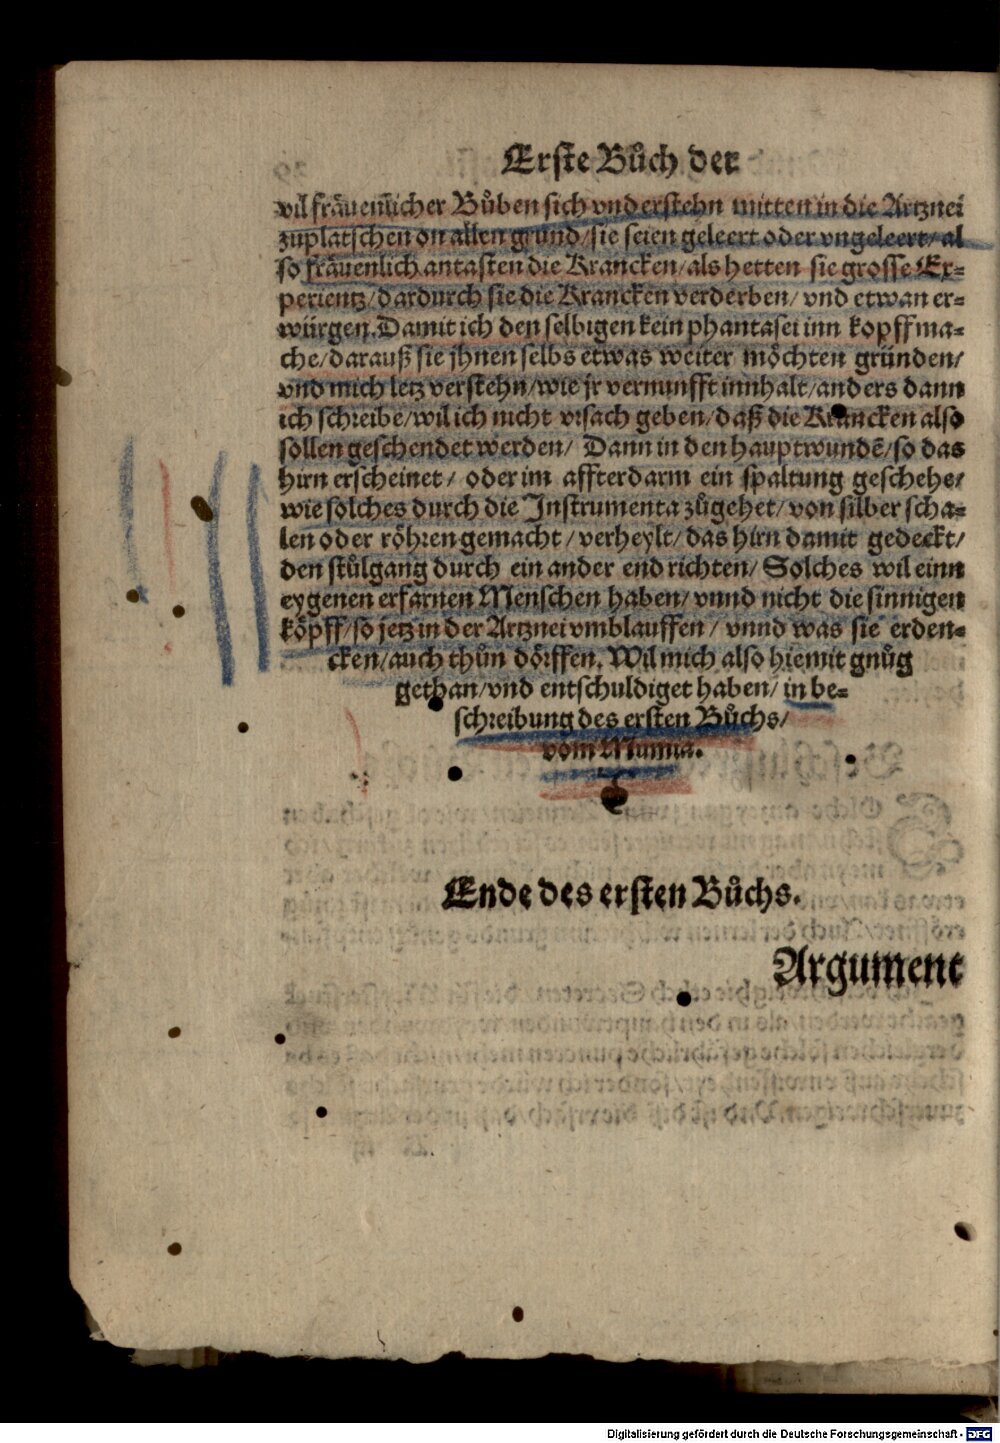 Erste Bůch der
vil fräuenlicher Bůben sich vnderstehn mitten in die Artznei
zuplatschen on allen grund/sie seien geleert oder vngeleert/al
so fräuenlich antasten die Krancken/als hetten sie grosse Ex-
perientz/dardurch sie die Krancken verderben/vnd etwan er-
würgen. Damit ich den selbigen kein phantasei inn kopff ma-
che/darauß sie jhnen selbs etwas weiter möchten gründen/
vnd mich letz verstehn/wie jr vernunfft innhalt/anders dann
ich schreibe/wil ich nicht vrsach geben/daß die Krancken also
sollen geschendet werden/ Dann in den hauptwundē/so das
hirn erscheinet/ oder im affterdarm ein spaltung geschehe/
wie solches durch die Instrumenta zůgehet/von silber scha-
len oder röhren gemacht/verheylt/das hirn damit gedeckt/
den stůlgang durch ein ander end richten/ Solches wil einn
eygenen erfarnen Menschen haben/vnnd nicht die sinnigen
köpff/so jetz in der Artznei vmblauffen/ vnnd was sie erden-
cken/auch thůn dörffen. Wil mich also hiemit gnůg
gethan/vnd entschuldiget haben/in be-
schreibung des ersten Bůchs/
vom Mumia.
Ende des ersten Bůchs.
Argument
Digitalisierung gefördert durch die Deutsche Forschungsgemeinschaft - DFG